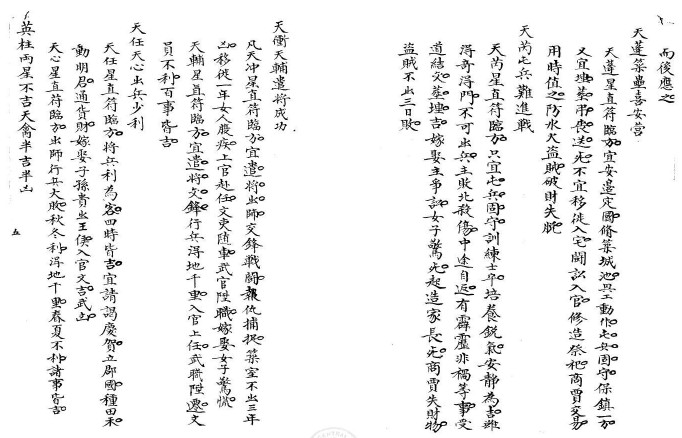 而後應之
天蓬築壘喜安營
天蓬星直符臨方宜安邊定國脩築城池興工動作屯兵固守保鎮一方
又宜埋葬吊喪送死不宜移徙入宅鬪訟入官修造祭祀商賈交易
用時值之防水火盜賊破財失脫
天芮屯兵難進戰
天芮星直符臨方只宜屯兵固守訓練士卒培養銳氣安靜為吉雖
得奇得門不可出兵主敗北殺傷中途自返有霹靂非禍等事受
道結交葬埋吉嫁娶主爭訟女子驚死起造家長死商賈失財物
盜賊不出三日敗
天衝天輔遣將成功
凡天冲星直符臨方宜遣將出師交鋒戰鬪報仇捕捉築室不出三年
凶移徙一年女人股疾上官赴任文吏隨車武官陞職嫁娶女子驚慌
天輔星直符臨方宜遣將交鋒行兵得地千里入官上任武職陞遷文
員不利百事皆吉
天任天心出兵少利
天任星直符臨方將兵利為客四時皆吉宜請謁慶賀立郡國種田禾
動明君通貨財嫁娶子孫貴出王侯入官文吉武凶
天心星直符臨方出師行兵大敗秋冬利得地千里春夏不利諸事皆吉
英柱兩星不吉天禽半吉半凶
五